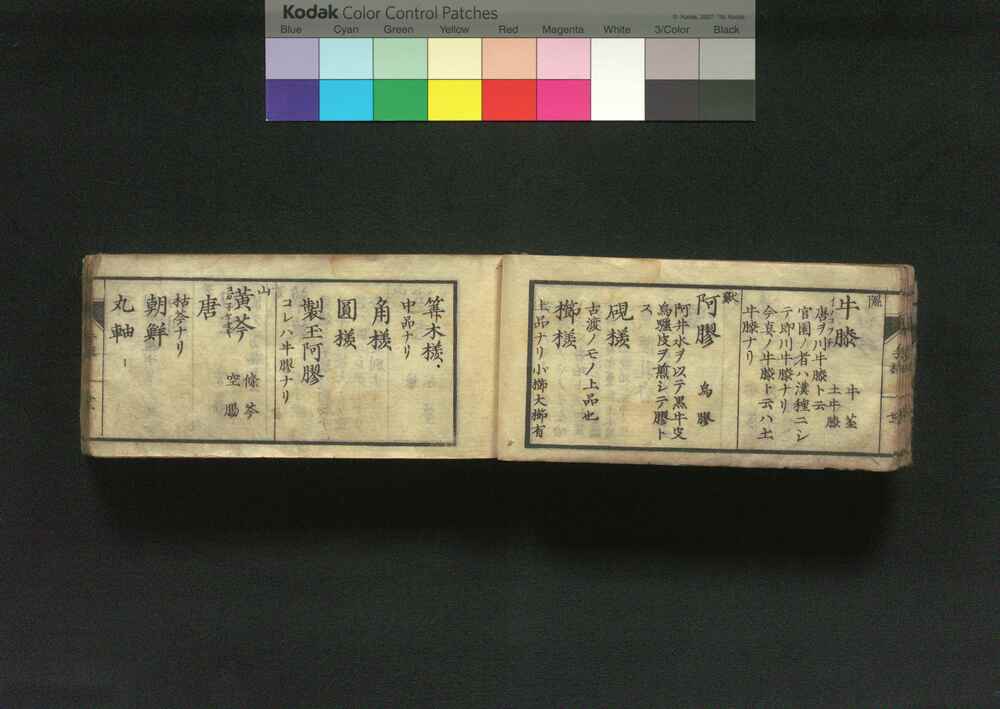 Kodak Color Control Patches
Blue Cyan Green Yellow Red Magenta White 3/Color Black
隰
牛膝
牛莖
土牛膝
唐ヲ川牛膝ト云
官園ノ者ハ漢種ニシ
テ即川牛膝ナリ
今真ノ牛膝ト云ハ土
牛膝ナリ
獸
阿膠 烏膠
阿井水ヲ以テ黒牛皮
烏驢皮ヲ煎シテ膠ト
ス
硯様
古渡ノモノ上品也
櫛様
上品ナリ小櫛大櫛有
筭木様
中品ナリ
角様
圓様
製玉阿膠
コレハ牛膠ナリ
山
黄芩
條芩
空腸
唐
枯芩ナリ
朝鮮
丸軸